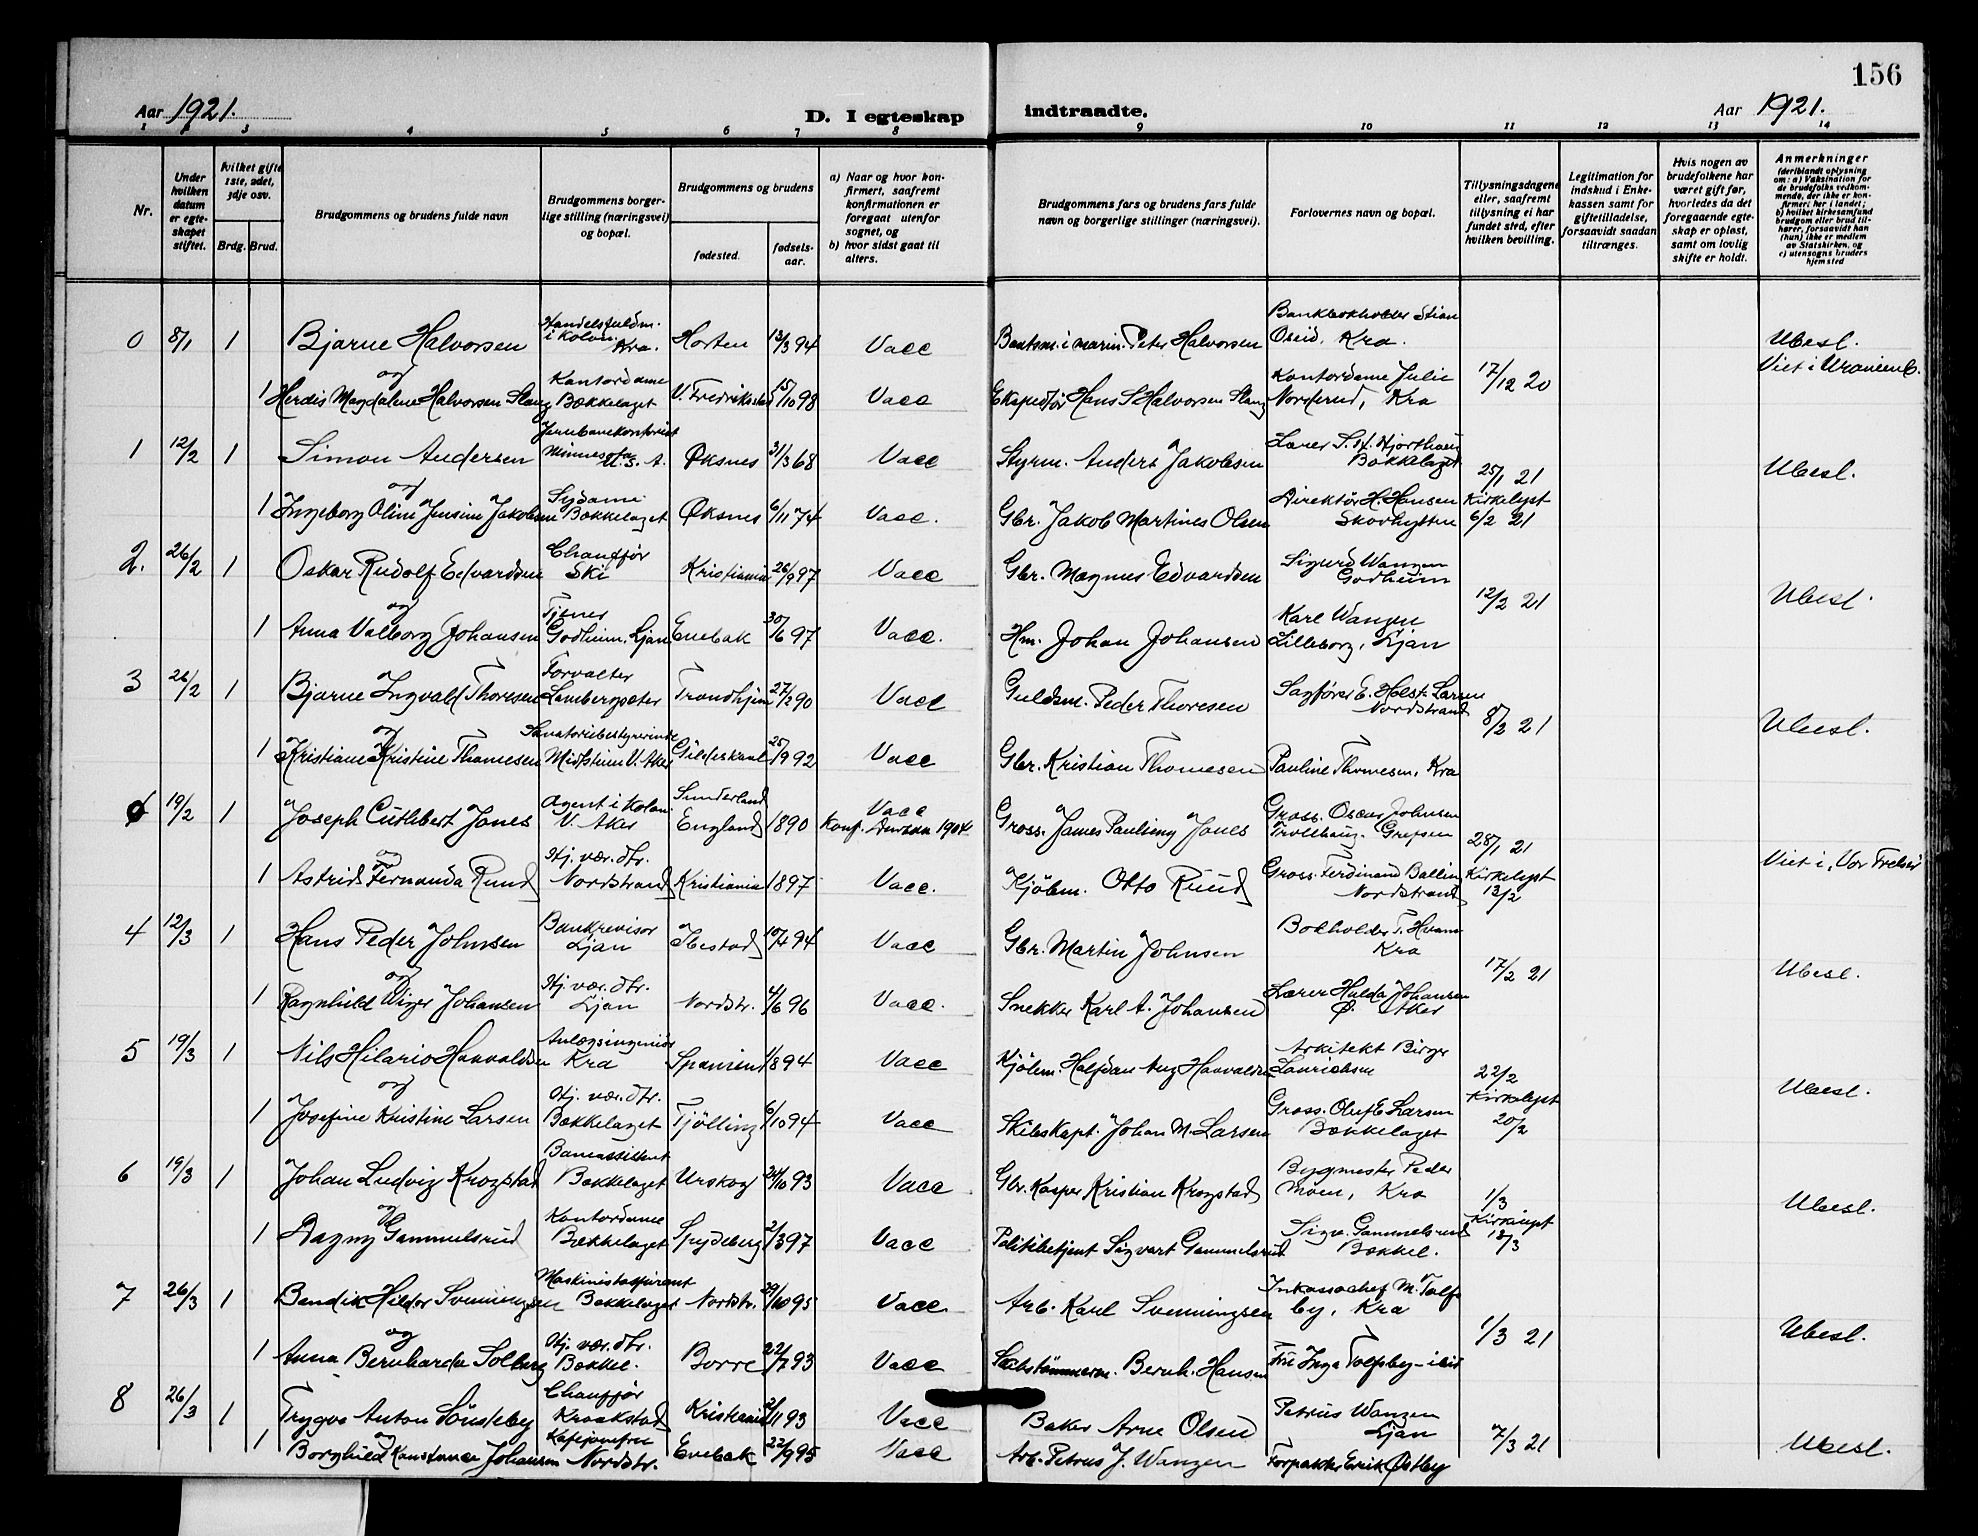 156
Aar 1921.
D. I egteskap indtraadte.
Aar 1921.
1 2 3 4 5 6 7 8 9 10 11 12 13 14
Nr.
Under hvilken datum er egteskapet stiftet.
Hvilket gifte 1ste, 2det, 3dje osv.
Brdg. Brud.
Brudgommens og brudens fulde navn
Brudgommens borgerlige stilling (næringsvei) og bopæl.
Brudgommens og brudens
fødested.
fødselsaar.
a) Naar og hvor konfirmert, saafremt konfirmationen er foregaat utenfor sognet, og
b) hvor sidst gaat til alters.
Brudgommens fars og brudens fars fulde navn og borgerlige stillinger (næringsvei).
Forlovernes navn og bopæl.
Tillysningsdagene eller, saafremt tillysning ei har fundet sted, efter hvilken bevilling.
Legitimation for indskud i Enkekassen samt for giftetilladelse, forsaavidt saadan tiltrænges.
Hvis nogen av brudefolkene har været gift før, hvorledes da det foregaaende egteskap er opløst, samt om lovlig skifte er holdt.
Anmerkninger
(deriblandt oplysning om: a) Vaksination for de brudefolks vedkommende, der ikke er konfirmert her i landet; b) hvilket kirkesamfund brudgom eller brud tilhører, forsaavidt han (hun) ikke er medlem av Statskirken, og c) utensogns bruders hjemsted
0 8/1 1 Bjarne Halvorsen Handelsfuldm. i Kolon. Kra. Horten 13/3 94 Vacc Baatsm. i marin. Peter Halvorsen Bankbokholder Stian Oseid, Kra. Ubesl.
og 17/12 20 Viet i Uranienb.
1 Herdis Magdalene Halvorsen Slang Kontordame Bækkelaget V. Fredrikstad 15/10 98 Vacc Ekspeditør Hans S Halvorsen Slang Kontordame Julie Norderud, Kra
1 12/2 1 Simon Andersen Jernbanekontorist Minnesota U.S.A. Øksnes 31/3 68 Vacc Styrm. Anders Jakobsen Lærer S. H. Hjorthaug Bækkelaget 25/1 21 Ubesl.
og
1 Ingeborg Oline Jensine Jakobsen Sydame Bækkelaget Øksnes 6/11 74 Vacc. Gbr. Jakob Martines Olsen Direktør H. Hansen Skovhytten Kirkelyst 6/2 21
2. 26/2 1 Oskar Rudolf Edvardsen Chauffør Ski Kristiania 26/9 97 Vacc Gbr. Magnus Edvardsen Sigurd Wangen Godheim 12/2 21 Ubesl.
og
1 Anna Valborg Johansen Tjener Godheim, Ljan Enebak 30/6 97 Vacc. Hm. Johan Johansen Karl Wangen Lilleborg, Ljan
3 26/2 1 Bjarne Ingvald Thoresen Forvalter Lambergsæter Trondhjem 27/2 90 Vacc Guldsm. Peder Thoresen Sagfører E. Holst-Larsen Nordstrand 8/2 21 Ubesl.
og
1 Kristiane Kristine Thomesen Sanatoriebestyrerinde Midtstuen V. Aker Gildeskaal 25/9 92 Vacc Gbr. Kristian Thomesen Pauline Thomesen, Kra
19/2 1 Joseph Cuthbert Jones Agent i Kolon V. Aker Sunderland England 1890 Vacc Konf. 1904 Gross. James Jones Gross. Oscar Johnsen Trollhaug. Grefsen 28/1 21
og Viet i, Vor Frelser
1 Astrid Fernanda Ruud Hj. vær. dtr. Nordstrand Kristiania 1897 Vacc. Kjøbm. Otto Ruud Gross. Ferdinand Ballin Nordstrand Kirkelyst 13/2
4 12/3 1 Hans Peder Johnsen Bankrevisor Ljan Ibestad 10/4 94 Vacc Gbr. Martin Johnsen Bokholder T. Kra 17/2 21 Ubesl.
og
1 Ragnhild Wiger Johansen Hj. vær. dtr. Ljan Nordstr. 4/6 96 Vacc. Snekker Karl A. Johansen Lærer Hulda Johansen Ø. Aker
5 19/3 1 Nils Hilario Haavaldsen Anlægsingeniør Kra Spanien 1894 Vacc Kjøbm. Halfdan Aug Haavaldsen Arkitekt Birger Lauridsen 22/2 Ubesl.
og Kirkelyst
1 Josefine Kristine Larsen Hj. vær. dtr. Bækkelaget Tjølling 6/10 94 Vacc Skibskapt. Johan M. Larsen Gross. Oluf E Larsen Bækkelaget 20/2
6 19/3 1 Johan Ludvig Krogstad Baneassistent Bækkelaget Urskog 24/10 93 Vacc Gbr. Kasper Kristian Krogstad Bygmester Peder Moen, Kra 1/3 Ubesl.
og Kirkelyst
1 Dagny Gammelsrud Kontordame Bækkelaget Spydeberg 2/3 97 Vacc Politibetjent Sigvart Gammelsrud Sigv. Gammelsrud Bækkel. 13/3
7 26/3 1 Bendik Hildor Svenningsen Maskinistaspirant Bækkelaget Nordstr. 29/10 95 Vacc Arb. Karl Svenningsen Inkassochef M. Tolfsby, Kra 1/3 21 Ubesl.
og
1 Anna Bernharda Solberg Hj. vær. dtr. Bækkel. Borre 22/7 93 Vacc Bernh. Hansen Fru Inga Tolfsby - ibid
8 26/3 1 Trygve Anton Sønsteby Chauffør Kraakstad Kristiania 2/11 93 Vacc Baker Arne Olsen Petrus Wangen Ljan 7/3 21 Ubesl.
og
1 Borghild Konstanse Johansen Kafejomfru Nordstr. Enebak 22/9 95 Vacc Arb. Petrus J. Wangen Forpakter Erik Østby